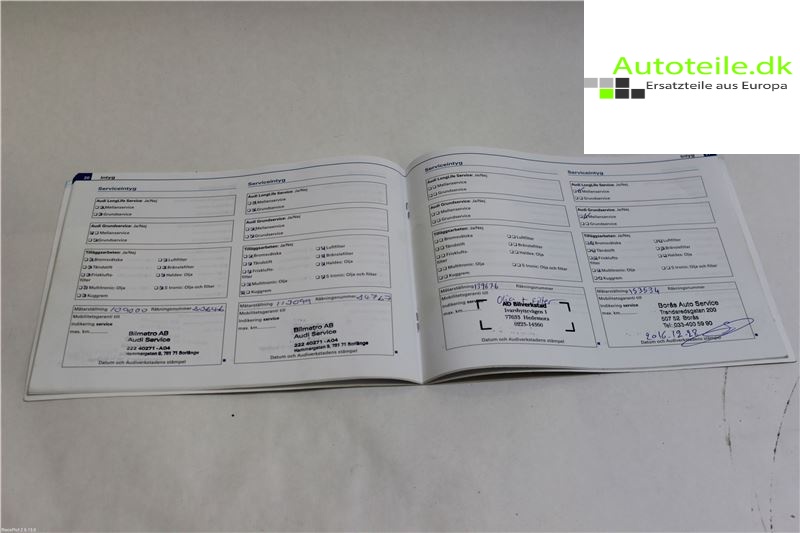 Autoteile.dk
Ersatzteile aus Europa
20
Intyg
Serviceintyg
Audi LongLife Service: Ja/Nej
Mellanservice
Grundservice
Audi Grundservice: Ja/Nej
Mellanservice
Grundservice
Tilläggsarbeten: Ja/Nej
Bromsvätska
Tändstift
Luftfilter
Friskluftsfilter
Bränslefilter
Haldex: Olja
Multitronic: Olja
S tronic: Olja och filter
Kuggrem
Mätarställning 109000 Räkningsnummer
Mobilitetsgaranti till
Indikering service
max. km
Bilmetro AB
Audi Service
222 40271 -A04
Hammargatan 8, 781 71 Borlänge
Datum och Audiverkstadens stämpel
Serviceintyg
Audi LongLife Service: Ja/Nej
Mellanservice
Grundservice
Audi Grundservice: Ja/Nej
Mellanservice
Grundservice
Tilläggsarbeten: Ja/Nej
Bromsvätska
Luftfilter
Tändstift
Bränslefilter
Friskluftsfilter
Haldex: Olja
Multitronic: Olja och filter
S tronic: Olja och filter
Kuggrem
Mätarställning Räkningsnummer
Mobilitetsgaranti till
Indikering service
max. km
Bilmetro AB
Audi Service
222 40271 -A04
Hammargatan 8, 781 71 Borlänge
Datum och Audiverkstadens stämpel
Serviceintyg
Audi LongLife Service: Ja/Nej
Mellanservice
Grundservice
Audi Grundservice: Ja/Nej
Mellanservice
Grundservice
Tilläggsarbeten: Ja/Nej
Bromsvätska
Luftfilter
Tändstift
Bränslefilter
Friskluftsfilter
Haldex: Olja
Multitronic: Olja och filter
S tronic: Olja och filter
Kuggrem
Mätarställning 139676 Räkningsnummer
Mobilitetsgaranti till
Olja + filter
Indikering service
max. km
AD Bilverkstad
Ivarshyttevägen 1
77633 Hedemora
0225-14560
Datum och Audiverkstadens stämpel
Intyg
Serviceintyg
Audi LongLife Service: Ja/Nej
Mellanservice
Grundservice
Audi Grundservice: Ja/Nej
Mellanservice
Grundservice
Tilläggsarbeten: Ja/Nej
Bromsvätska
Luftfilter
Tändstift
Bränslefilter
Friskluftsfilter
Haldex: Olja
Multitronic: Olja och filter
S tronic: Olja och filter
Kuggrem
Mätarställning 153534 Räkningsnummer
Mobilitetsgaranti till
Indikering service
max. km
Borås Auto Service
Trandaredsgatan 200
507 52 Borås
Tel: 033-400 59 90
2016.12.28
Datum och Audiverkstadens stämpel